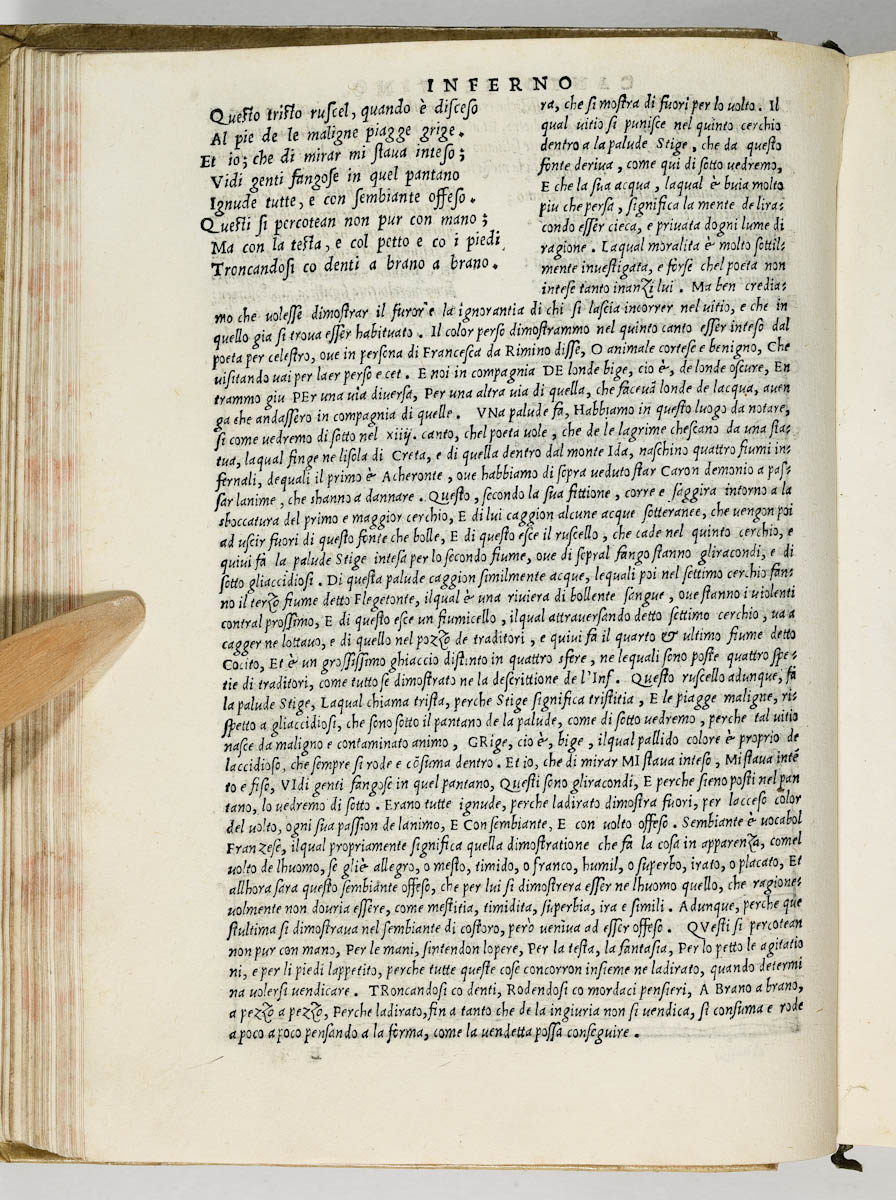 INFERNO
Questo tristo ruscel, quando è disceso
Al pie de le maligne piagge grige.
Et io; che di mirar mi staua inteso;
Vidi genti fangose in quel pantano
Ignude tutte, e con sembiante offeso.
Questi si percotean non pur con mano;
Ma con la testa, e col petto e co i piedi
Troncandosi co denti a brano a brano.
ra, che si mostra di fuori per lo uolto. Il
qual uitio si punisce nel quinto cerchio
dentro a la palude Stige, che da questo
fonte deriua, come qui di sotto uedremo,
E che la sua acqua, laqual è buia molto
piu che persa, significa la mente de lira-
condo esser cieca, e priuata dogni lume di
ragione. Laqual moralita è molto sottil-
mente inuestigata, e forse chel poeta non
intese tanto inanzi lui. Ma ben credia-
mo che uolesse dimostrar il furor'e la ignorantia di chi si lascia incorrer nel uitio, e che in
quello gia si troua esser habituato. Il color perso dimostrammo nel quinto canto esser inteso dal
poeta per celestro, oue in persona di Francesca da Rimino disse, O animale cortese e benigno, Che
uisitando uai per laer perso e cet. E noi in compagnia DE londe bige, cio è, de londe oscure, En
trammo giu PEr una uia diuersa, Per una altra uia di quella, che faceuā londe de lacqua, auen
ga che andassero in compagnia di quelle. VNa palude fa, Habbiamo in questo luogo da notare,
si come uedremo di sotto nel xiiij. canto, chel poeta uole, che de le lagrime chescano da una sta-
tua, laqual finge ne lisola di Creta, e di quella dentro dal monte Ida, naschino quattro fiumi in-
fernali, dequali il primo è Acheronte, oue habbiamo di sopra ueduto star Caron demonio a pas-
sar lanime, che shanno a dannare. Questo, secondo la sua fittione, corre e saggira intorno a la
sboccatura del primo e maggior cerchio, E di lui caggion alcune acque sotterance, che uengon poi
ad uscir fuori di questo fonte che bolle, E di questo esce il ruscello, che cade nel quinto cerchio, e
quiui fa la palude Stige intesa per lo secondo fiume, oue di sopral fango stanno gliracondi, e di
sotto gliaccidiosi. Di questa palude caggion similmente acque, lequali poi nel settimo cerchio fan-
no il terzo fiume detto Flegetonte, ilqual è una riuiera di bollente sangue, oue stanno i uiolenti
contral prossimo, E di questo esce un fiumicello, ilqual attrauersando detto settimo cerchio, ua a
cagger ne lottauo, e di quello nel pozzo de traditori, e quiui fa il quarto & ultimo fiume detto
Cocito, Et è un grossissimo ghiaccio distinto in quattro sfere, ne lequali sono poste quattro spe-
tie di traditori, come tutto se dimostrato ne la descrittione de l'Inf. Questo ruscello adunque, fa
la palude Stige, Laqual chiama trista, perche Stige significa tristitia, E le piagge maligne, ri-
spetto a gliaccidiosi, che sono sotto il pantano de la palude, come di sotto uedremo, perche tal uitio
nasce da maligno e contaminato animo, GRige, cio è, bige, ilqual pallido colore è proprio de
laccidioso, che sempre si rode e cōsuma dentro. Et io, che di mirar MI staua inteso, Mi staua intē
to e fiso, VIdi genti fangose in quel pantano, Questi sono gliracondi, E perche sieno posti nel pan
tano, lo uedremo di sotto. Erano tutte ignude, perche ladirato dimostra fuori, per lacceso color
del uolto, ogni sua passion de lanimo, E Con sembiante, E con uolto offeso. Sembiante è uocabol
Franzese, ilqual propriamente significa quella dimostratione che fa la cosa in apparenza, comel
uolto de lhuomo, se gliè allegro, o mesto, timido, o franco, humil, o superbo, irato, o placato, Et
allhora sara questo sembiante offeso, che per lui si dimostrera esser ne lhuomo quello, che ragione-
uolmente non douria essere, come mestitia, timidita, superbia, ira e simili. Adunque, perche que
stultima si dimostraua nel sembiante di costoro, però ueniua ad esser offeso. QVesti si percotean
non pur con mano, Per le mani, sintendon lopere, Per la testa, la fantasia, Per lo petto le agitatio
ni, e per li piedi lappetito, perche tutte queste cose concorron insieme ne ladirato, quando determi
na uolersi uendicare. TRoncandosi co denti, Rodendosi co mordaci pensieri, A Brano a brano,
a pezzo a pezzo, Perche ladirato, fin a tanto che de la ingiuria non si uendica, si consuma e rode
a poco a poco pensando a la forma, come la uendetta possa conseguire.